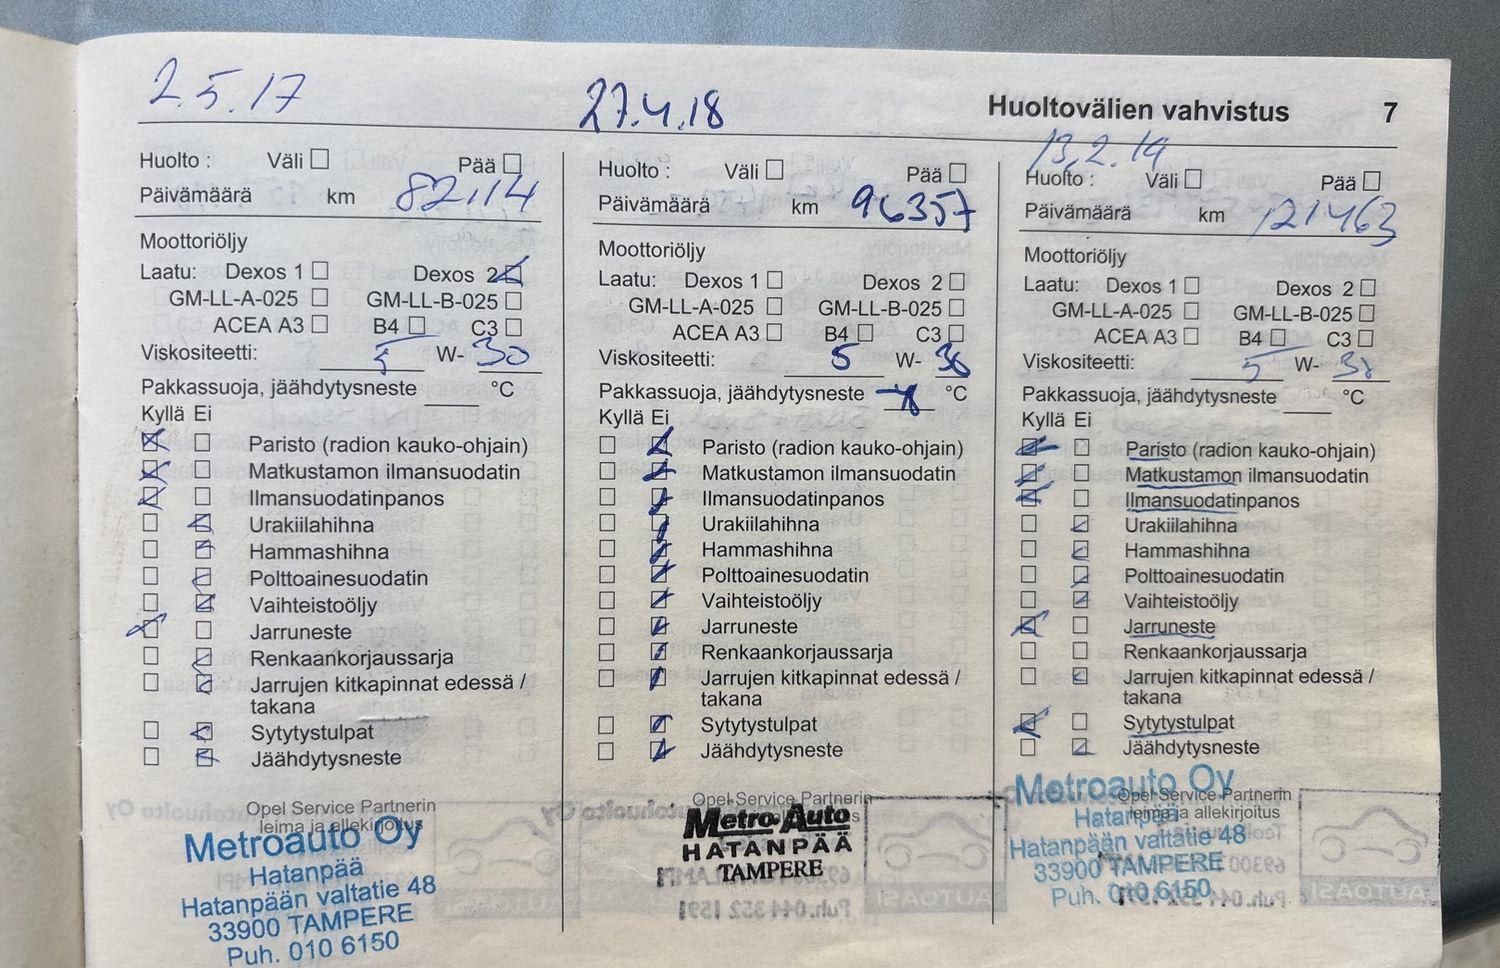 Huoltovälien vahvistus 7
2.5.17
Huolto : Väli Pää
Päivämäärä km 82114
Moottoriöljy
Laatu: Dexos 1 Dexos 2
GM-LL-A-025 GM-LL-B-025
ACEA A3 B4 C3
Viskositeetti: 5 W- 30
Pakkassuoja, jäähdytysneste °C
Kyllä Ei
Paristo (radion kauko-ohjain)
Matkustamon ilmansuodatin
Ilmansuodatinpanos
Urakiilahihna
Hammashihna
Polttoainesuodatin
Vaihteistoöljy
Jarruneste
Renkaankorjaussarja
Jarrujen kitkapinnat edessä /
takana
Sytytystulpat
Jäähdytysneste
Opel Service Partnerin
leima ja allekirjoitus
Metroauto Oy
Hatanpää
Hatanpään valtatie 48
33900 TAMPERE
Puh. 010 6150
27.4.18
Huolto : Väli Pää
Päivämäärä km 96357
Moottoriöljy
Laatu: Dexos 1 Dexos 2
GM-LL-A-025 GM-LL-B-025
ACEA A3 B4 C3
Viskositeetti: 5 W- 30
Pakkassuoja, jäähdytysneste °C
Kyllä Ei
Paristo (radion kauko-ohjain)
Matkustamon ilmansuodatin
Ilmansuodatinpanos
Urakiilahihna
Hammashihna
Polttoainesuodatin
Vaihteistoöljy
Jarruneste
Renkaankorjaussarja
Jarrujen kitkapinnat edessä /
takana
Sytytystulpat
Jäähdytysneste
Opel Service Partnerin
Metro Auto
HATANPÄÄ
TAMPERE
13.2.19
Huolto : Väli Pää
Päivämäärä km 121463
Moottoriöljy
Laatu: Dexos 1 Dexos 2
GM-LL-A-025 GM-LL-B-025
ACEA A3 B4 C3
Viskositeetti: 5 W- 30
Pakkassuoja, jäähdytysneste °C
Kyllä Ei
Paristo (radion kauko-ohjain)
Matkustamon ilmansuodatin
Ilmansuodatinpanos
Urakiilahihna
Hammashihna
Polttoainesuodatin
Vaihteistoöljy
Jarruneste
Renkaankorjaussarja
Jarrujen kitkapinnat edessä /
takana
Sytytystulpat
Jäähdytysneste
Opel Service Partnerin
leima ja allekirjoitus
Metroauto Oy
Hatanpää
Hatanpään valtatie 48
33900 TAMPERE
Puh. 010 6150